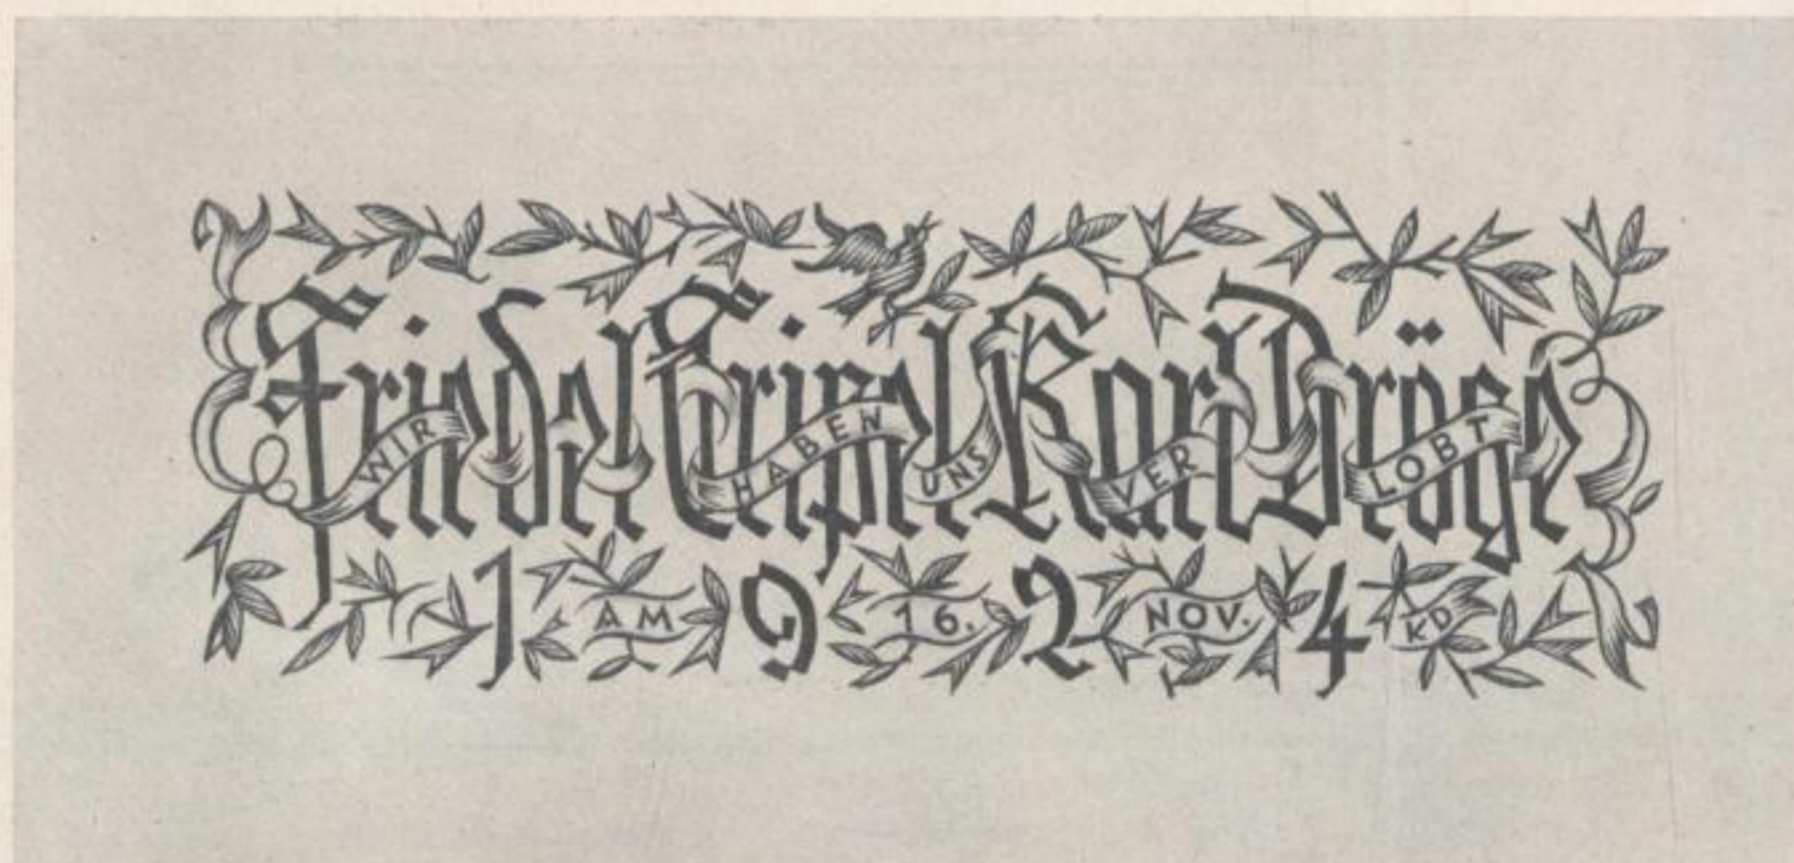 Friedel Tripel Karl Dröge
WIR HABEN UNS VER LOBT
1 AM 9 16. 2 NOV. 4 KD